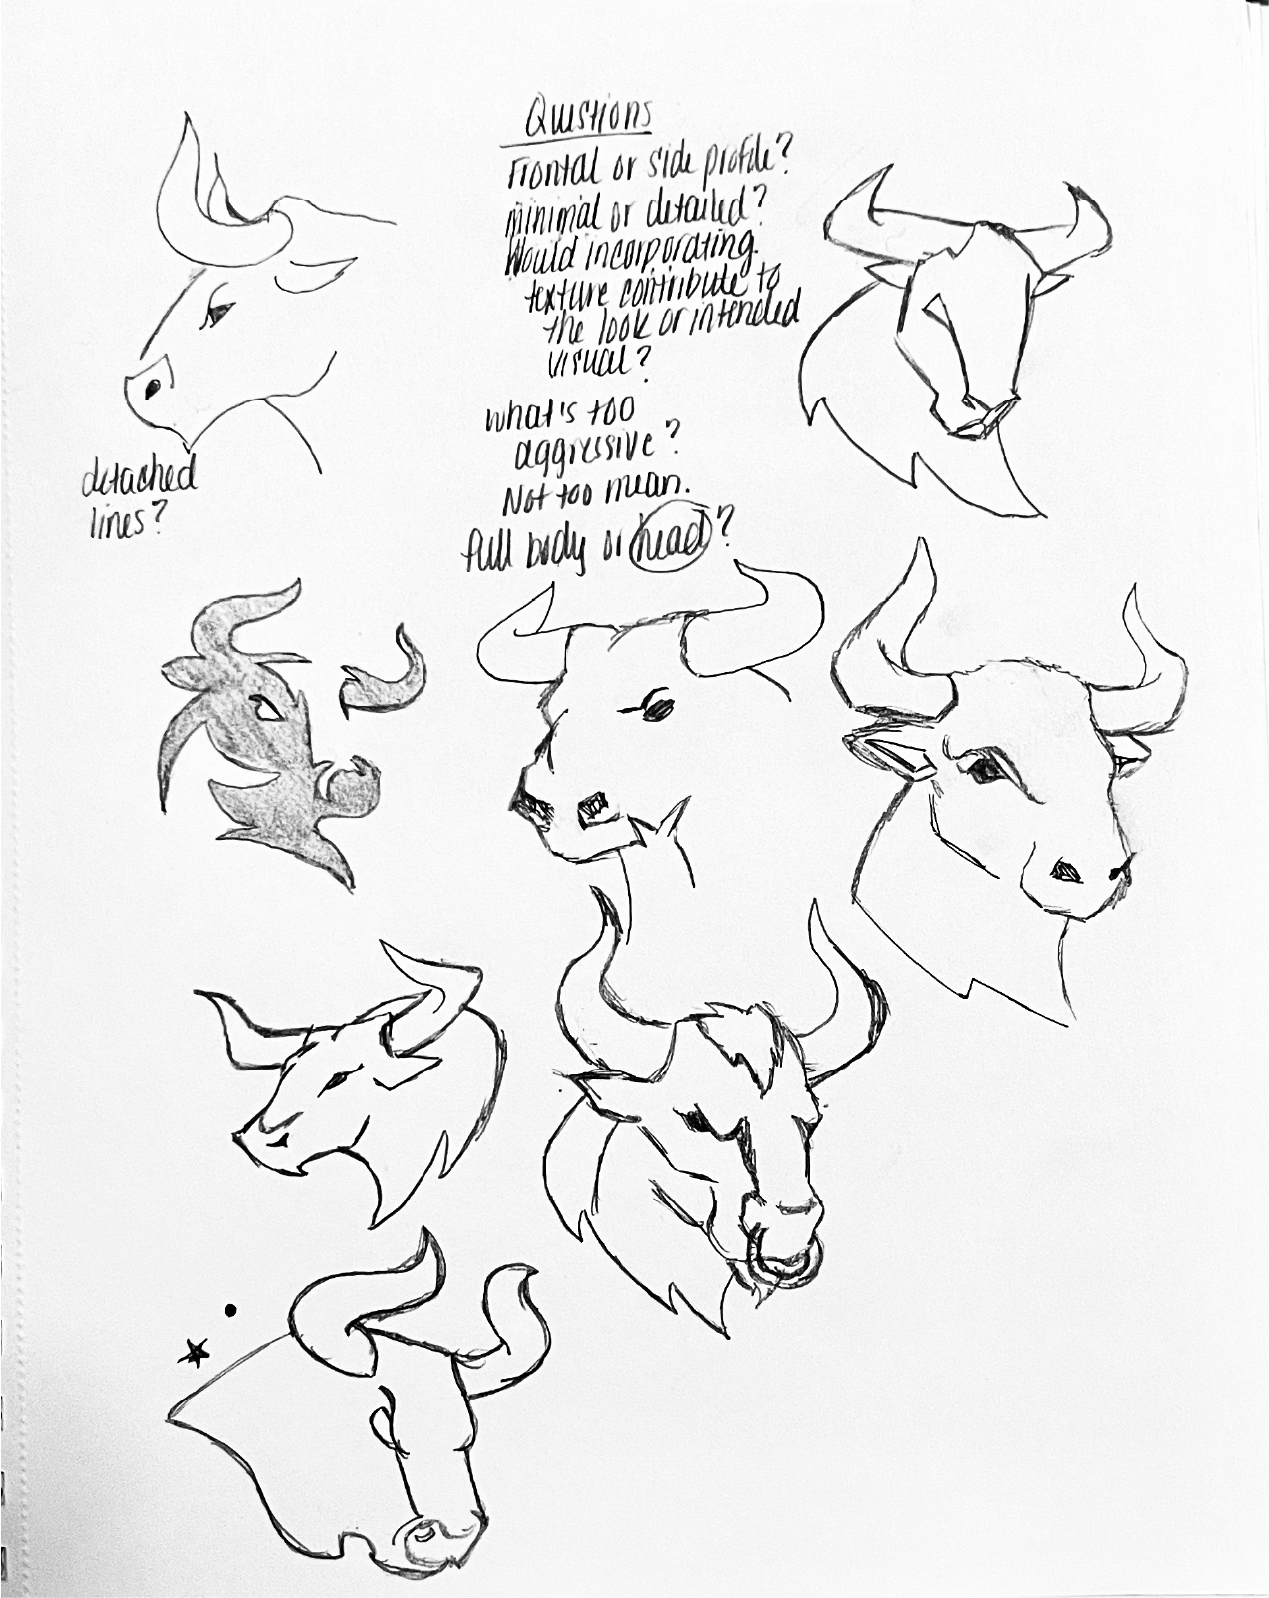 Questions
Frontal or side profile?
minimal or detailed?
Would incorporating
texture contribute to
the look or intended
visual?
what's too
aggressive?
Not too mean.
full body or head?
detached
lines?